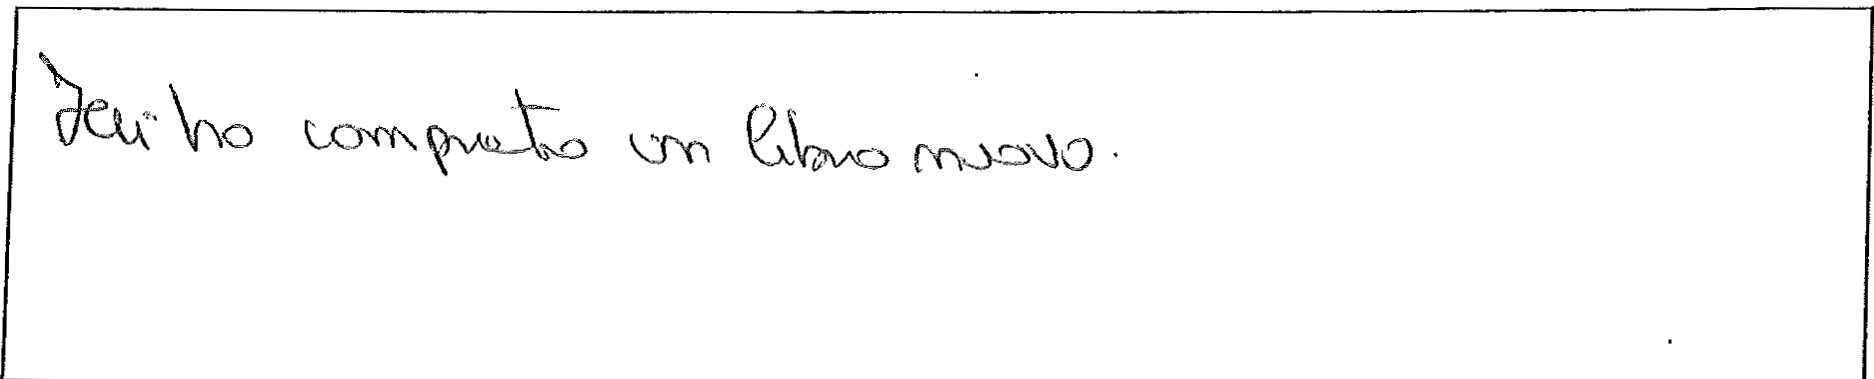 Ieri ho comprato un libro nuovo.